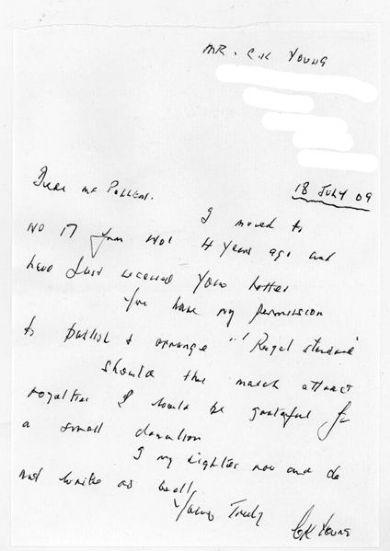 MR. C.K YOUNG
18 JULY 09
Dear Mr
I moved to
No 17 4 years ago and
have Just received your letter
You have my permission
to publish & arrange "Royal standard"
Should the march attract
royalties I would be grateful for
a small donation
I my eighties now and do
not write as well
Yours Truly
CK Young